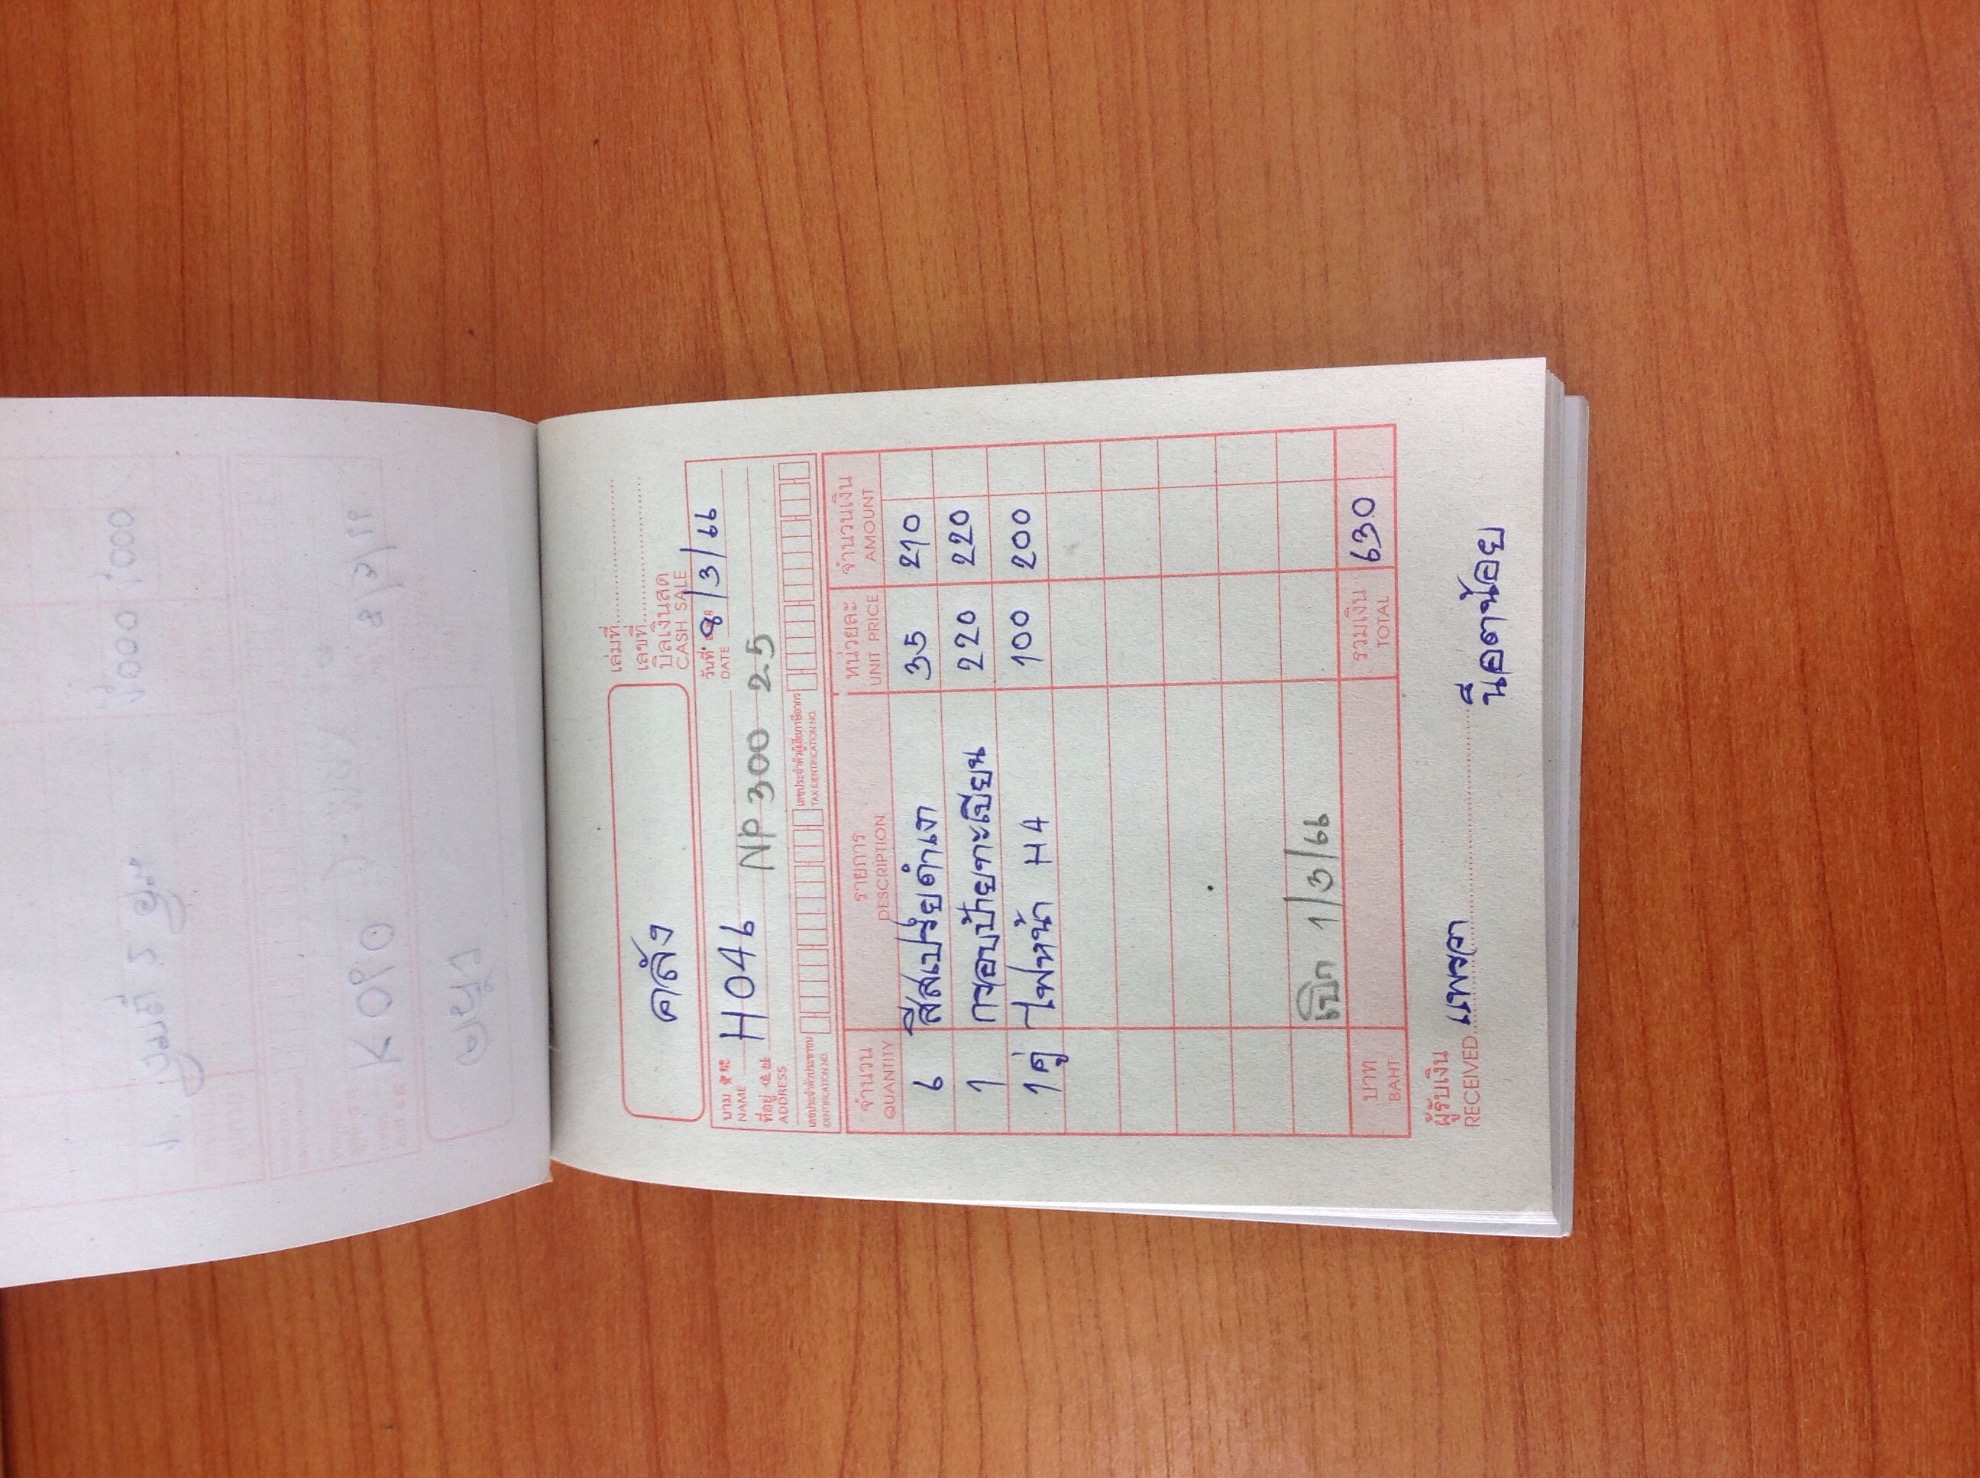 เล่มที่
เลขที่
บิลเงินสด
CASH SALE
คลัง
วันที่ 8/3/66
DATE
นาม
NAME H046
ที่อยู่ NP 300 25
ADDRESS
เลขประจำตัวประชาชน เลขประจำตัวผู้เสียภาษีอากร
IDENTIFICATION NO. TAX IDENTIFICATION NO.
จำนวน รายการ หน่วยละ จำนวนเงิน
QUANTITY DESCRIPTION UNIT PRICE AMOUNT
6 สีสเปรย์ดำเงา 35 210
1 กรอบป้ายทะเบียน 220 220
1คู่ ไฟหน้า H4 100 200
เบิก 1/3/66
บาท รวมเงิน 630
BAHT TOTAL
ผู้รับเงิน แพรวา
RECEIVED
น๊อตน้อย
K090